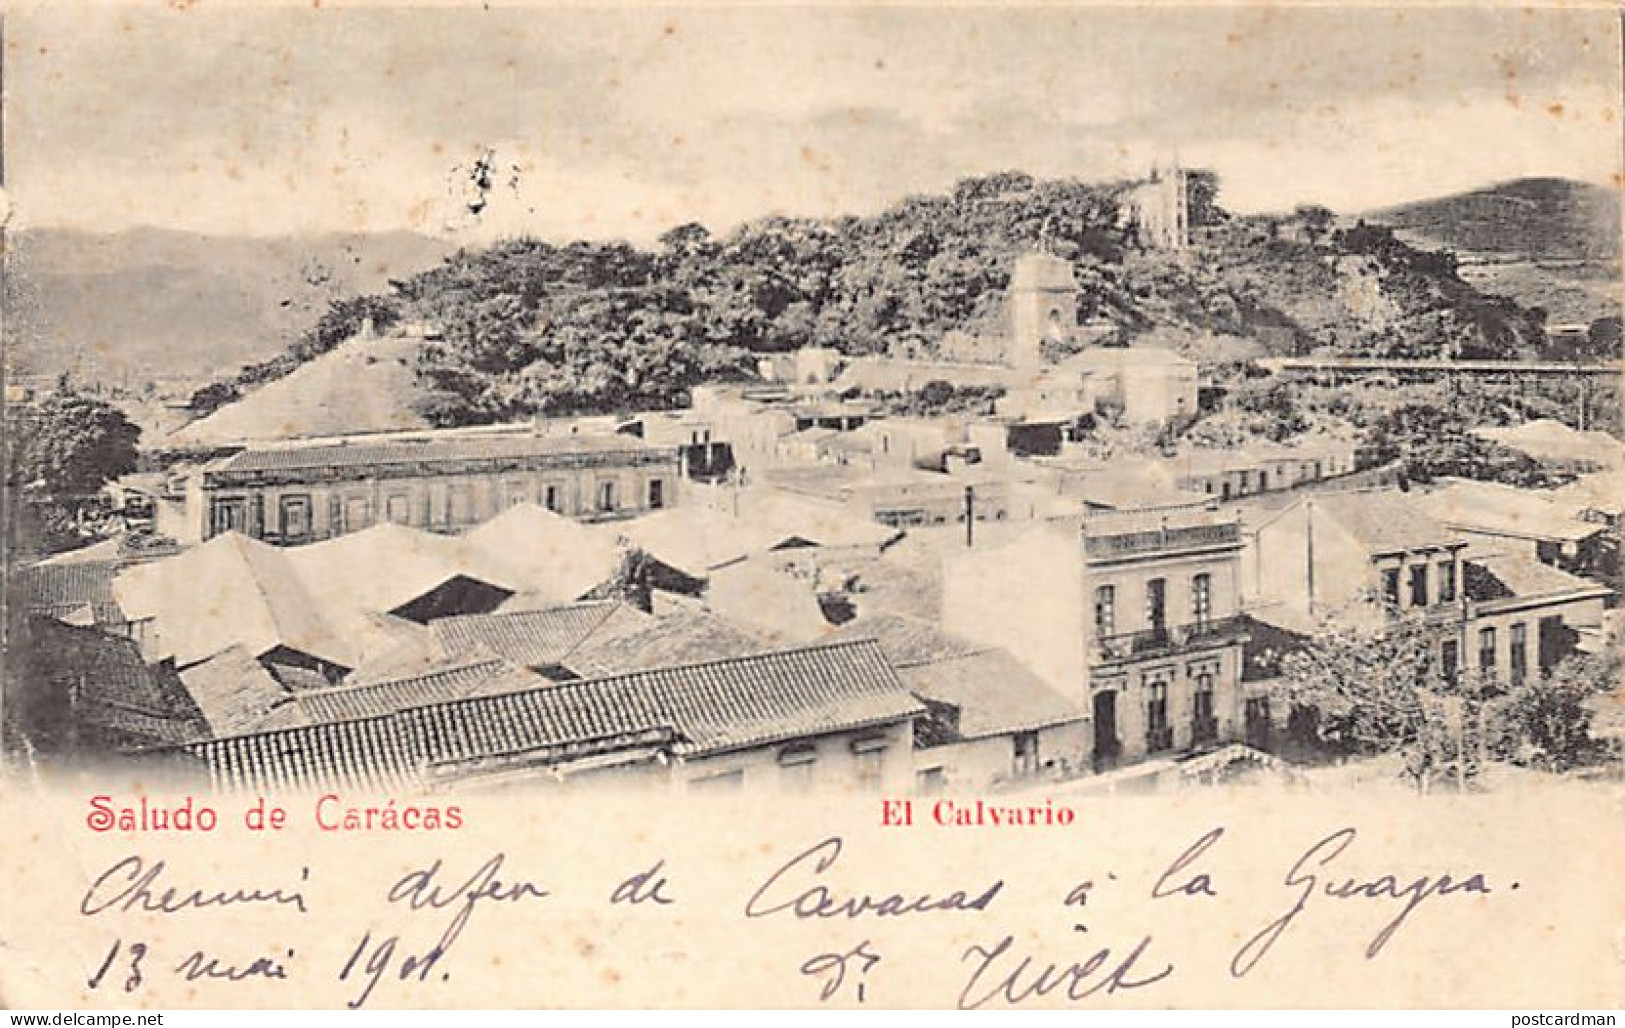 Saludo de Carácas
El Calvario
Chemin de fer de Caracas à la Guayra.
13 mai 1901.
Dr
www.delcampe.net
postcardman